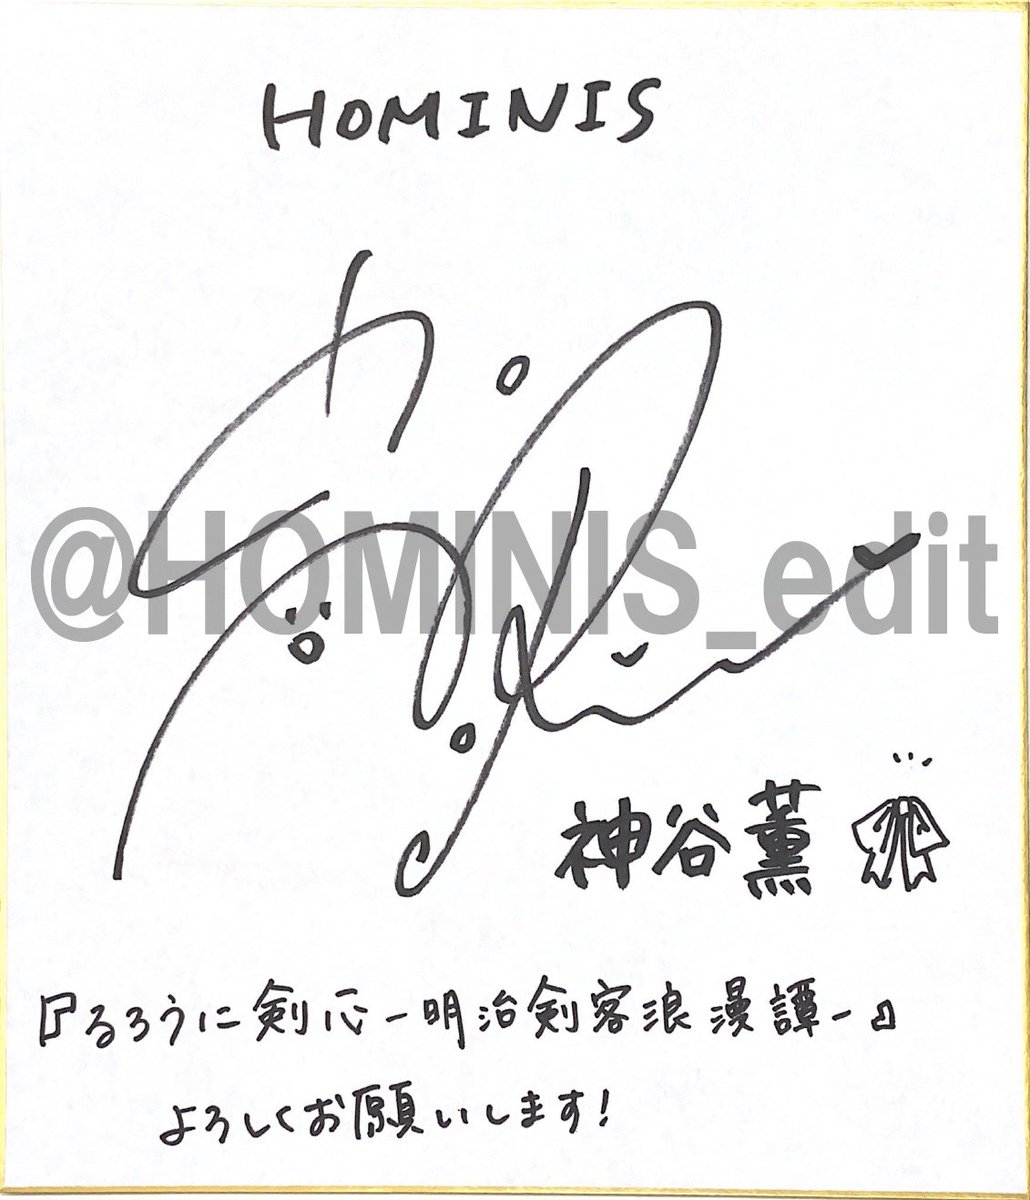 HOMINIS
@HOMINIS_edit
神谷薫
『るろうに剣心-明治剣客浪漫譚-』
よろしくお願いします!